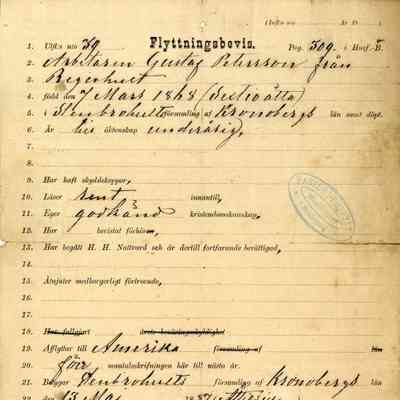 1. Utfl:s n:o 39 Flyttningsbevis. Pag. 309. i Husf.-B.
2. Arbetaren Gustaf Petersson från
3.
4. född den 7 Mars 1868 (Sextioåtta)
5. i Stenbrohults församling af Kronobergs län samt digt.
6. Är hes äktenskap underårig,
7.
8.
9. Har haft skyddskoppor,
10. Läser rent innantill,
11. Eger godkänd kristendomskunskap,
12. Har bevistat förhören,
13. Har begått H. H. Nattvard och är dertill fortfarande berättigad,
14.
15. Åtnjuter medborgerligt förtroende,
16.
17.
18. Har fullgjort årets beväringsskyldighet
19. Afflyttar till Amerika församling af län
20. före mantalsskrifningen här till nästa år.
21. Stenbrohults församling af Kronobergs län
22. den 13 Maj